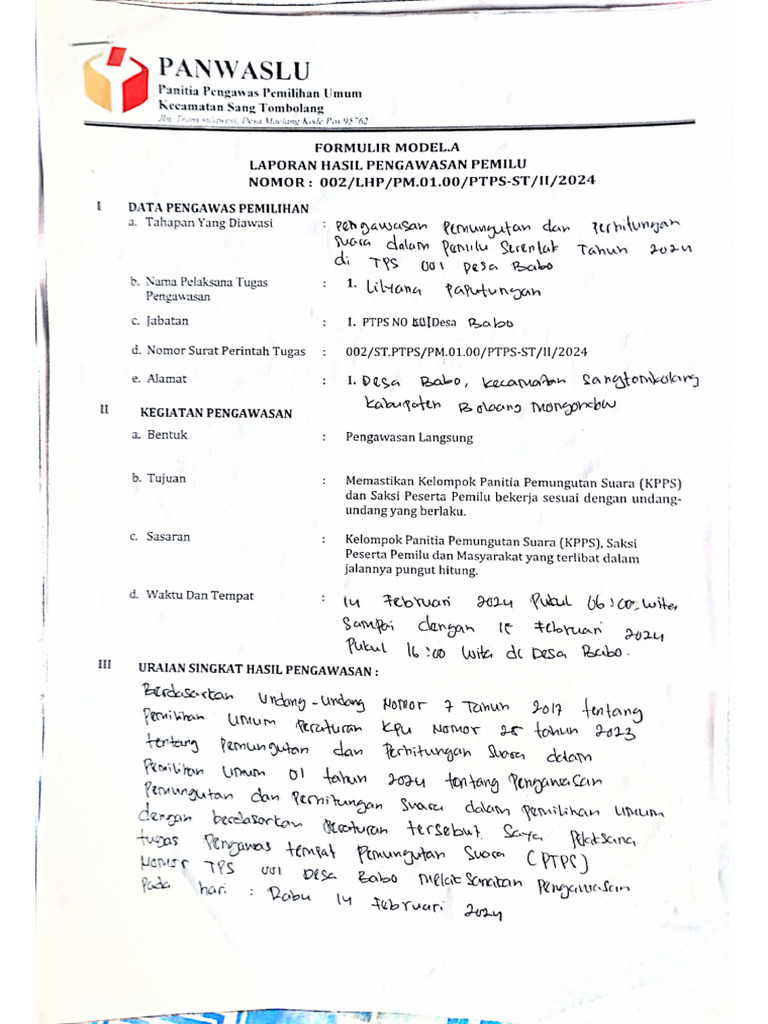 PANWASLU
Panitia Pengawas Pemilihan Umum
Kecamatan Sang Tombolang
Jln. Trans sulawesi, Desa Maelang Kode Pos 95762
FORMULIR MODEL.A
LAPORAN HASIL PENGAWASAN PEMILU
NOMOR : 002/LHP/PM.01.00/PTPS-ST/II/2024
I DATA PENGAWAS PEMILIHAN
a. Tahapan Yang Diawasi : pengawasan Pemungutan dan Perhitungan
suara dalam Pemilu Serentak Tahun 2024
di TPS 001 Desa Babo
b. Nama Pelaksana Tugas : 1. Lilyana Paputungan
Pengawasan
c. Jabatan : 1. PTPS NO 001 Desa Babo
d. Nomor Surat Perintah Tugas : 002/ST.PTPS/PM.01.00/PTPS-ST/II/2024
e. Alamat : 1. Desa Babo, kecamatan Sangtombolang
kabupaten Bolaang Mongondow
II KEGIATAN PENGAWASAN
a. Bentuk : Pengawasan Langsung
b. Tujuan : Memastikan Kelompok Panitia Pemungutan Suara (KPPS)
dan Saksi Peserta Pemilu bekerja sesuai dengan undang-
undang yang berlaku.
c. Sasaran : Kelompok Panitia Pemungutan Suara (KPPS), Saksi
Peserta Pemilu dan Masyarakat yang terlibat dalam
jalannya pungut hitung.
d. Waktu Dan Tempat : 14 Februari 2024 Pukul 06:00 wita
Sampai dengan 15 Februari 2024
Pukul 16:00 Wita di Desa Babo.
III URAIAN SINGKAT HASIL PENGAWASAN :
Berdasarkan Undang-Undang Nomor 7 Tahun 2017 tentang
Pemilihan Umum Peraturan KPU Nomor 25 tahun 2023
tentang Pemungutan dan Perhitungan Suara dalam
Pemilihan Umum 01 tahun 2024 tentang Pengawasan
Pemungutan dan Perhitungan Suara dalam pemilihan umum
dengan berdasarkan Peraturan tersebut Saya Pelaksana
tugas Pengawas tempat Pemungutan Suara (PTPS)
Nomor TPS 001 Desa Babo Melaksanakan Pengawasan
Pada hari : Rabu 14 Februari 2024